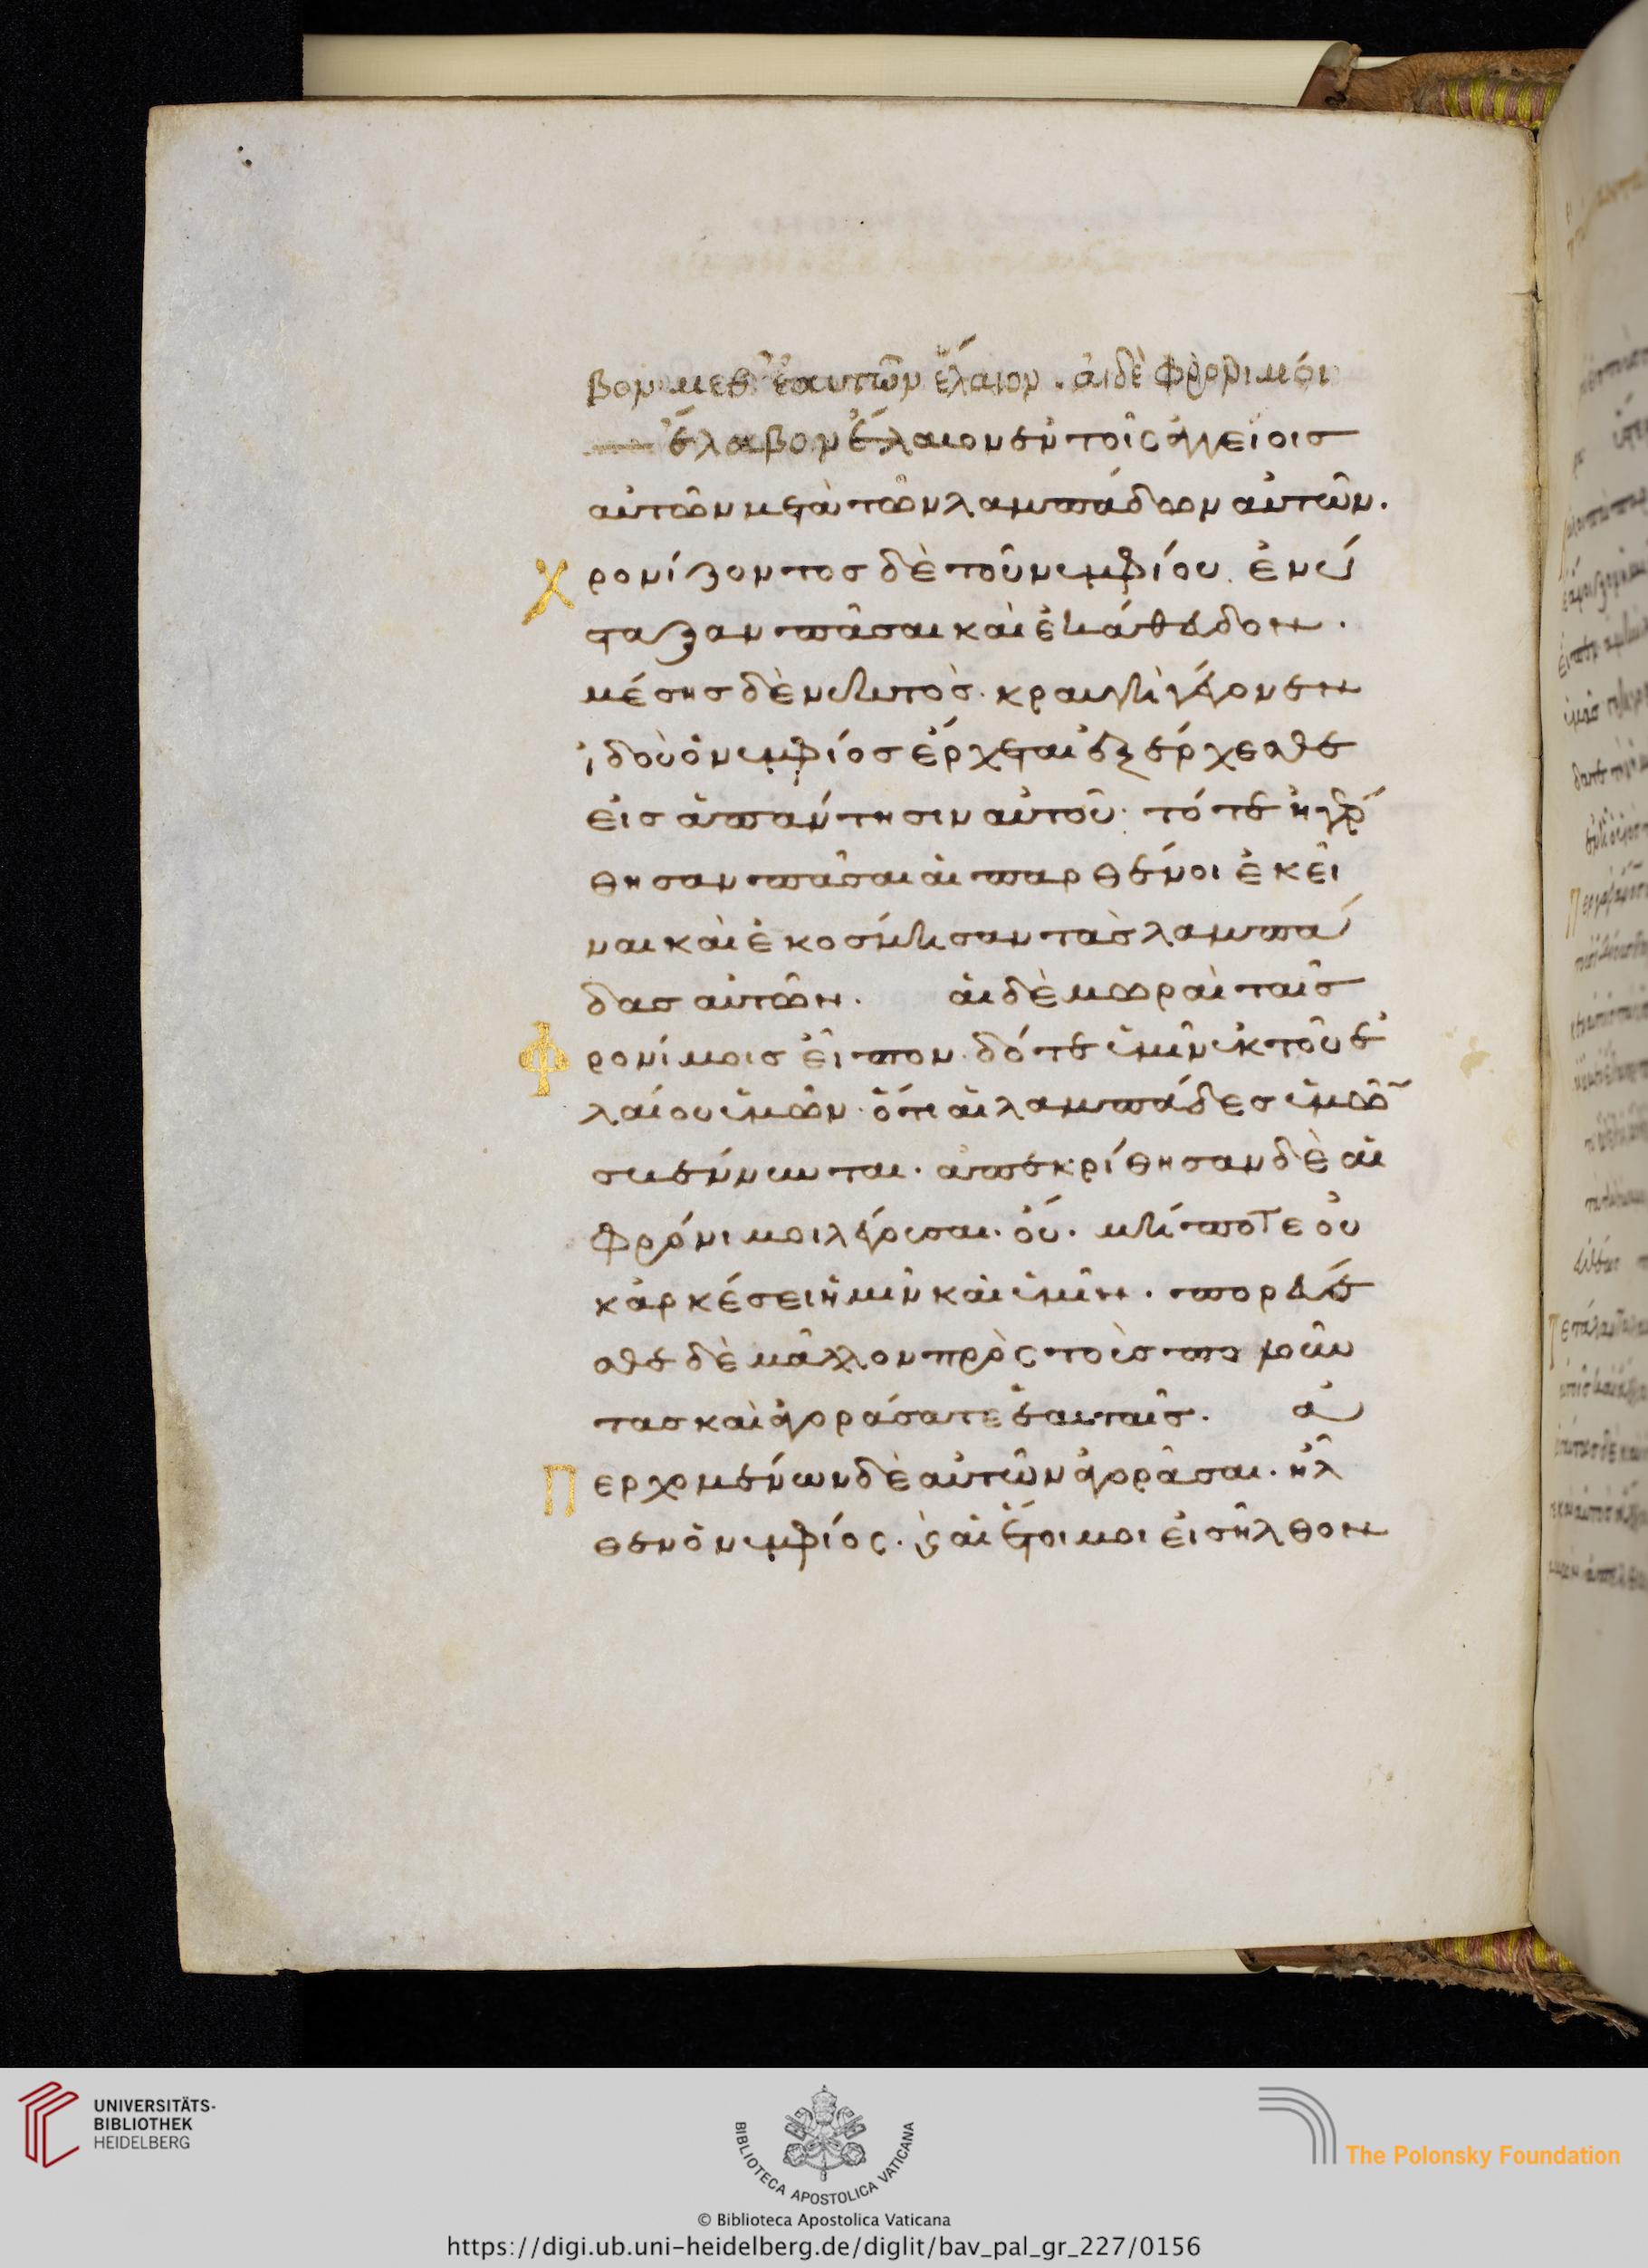 βον μεθ' ἑαυτῶν ἔλαιον . ἁι δὲ φρονιμόι
ἔλαβον ἔλαιον ἐν τοῖς ἀγγείοισ
αὐτῶν μετὰ τῶν λαμπάδων αὐτῶν .
Χρονίζοντοσ δὲ τοῦ νυμφίου . ἐνύ
σταξαν πᾶσαι καὶ ἐκάθευδον .
μέσησ δὲ νυκτὸσ . κραυγὴ γέγονεν
ἰδοὺ ὁ νυμφίοσ ἔρχεται ἐξέρχεσθε
εἰσ ἀπάντησιν αὐτοῦ . τότε ἠγέρ
θησαν πᾶσαι ἁι παρθένοι ἐκεῖ
ναι καὶ ἐκόσμησαν τὰσ λαμπά
δασ αὐτῶν . ἁι δὲ μωραὶ ταῖσ
Φρονίμοισ εἶπον . δότε ἡμῖν ἐκ τοῦ ἐ
λαίου ὑμῶν . ὅτι ἁι λαμπάδεσ ἡμῶν
σβέννυνται . ἀπεκρίθησαν δὲ ἁι
φρόνιμοι λέγουσαι . οὔ . μήποτε οὐ
κ ἀρκέσει ἡμῖν καὶ ὑμῖν . πορεύε
σθε δὲ μᾶλλον πρὸς τοὺσ πωλοῦν
τασ καὶ ἀγοράσατε ἑαυταῖσ . ἀ
Περχομένων δὲ αὐτῶν ἀγοράσαι . ἦλ
θεν ὁ νυμφίος . ϗ ἁι ἕτοιμοι εἰσῆλθον
UNIVERSITÄTS-
BIBLIOTHEK
HEIDELBERG
BIBLIOTECA APOSTOLICA VATICANA
The Polonsky Foundation
© Biblioteca Apostolica Vaticana
https://digi.ub.uni-heidelberg.de/diglit/bav_pal_gr_227/0156